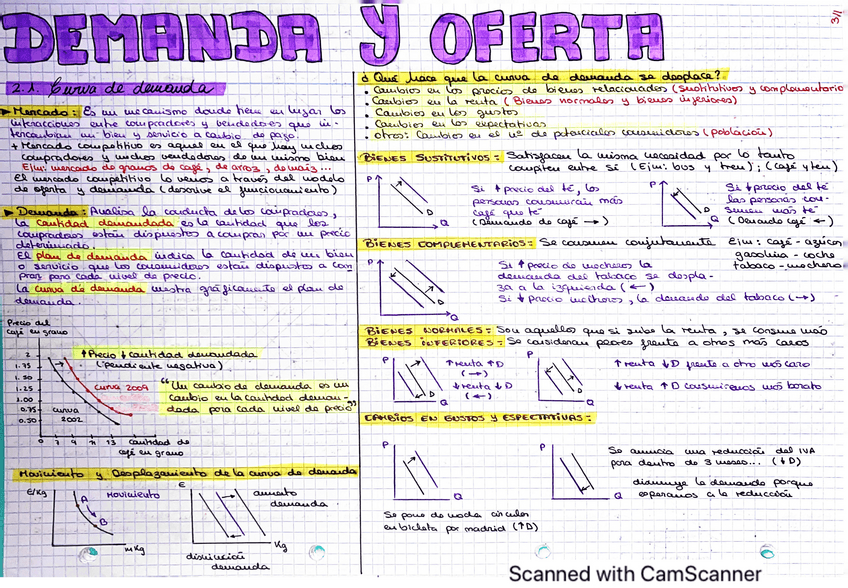 DEMANDA Y OFERTA
3/1
2.1. Curva de demanda
► Mercado: Es un mecanismo donde tiene en lugar los
interacciones entre compradores y vendedores que in-
tercambian un bien y servicio a cambio de pago.
+ Mercado competitivo es aquel en el que hay muchos
compradores y muchos vendedores de un mismo bien
Ejm: mercado de granos de café, de arroz, de maíz...
El mercado competitivo lo vemos a través del modelo
de oferta y demanda (describe el funcionamiento)
► Demanda: Analiza la conducta de los compradores,
la cantidad demandada es la cantidad que los
compradores están dispuestos a comprar por un precio
determinado.
El plan de demanda indica la cantidad de un bien
o servicio que los consumidores están dispuestos a com
prar para cada nivel de precio.
La curva de demanda muestra gráficamente el plan de
demanda.
Precio del
café en grano
2
1.75
1.50
1.25
1.00
0.75
0.50
0 7 9 11 13
Cantidad de
café en grano
↑Precio ↓ cantidad demandada
(Pendiente negativa)
curva 2009
curva
2002
"Un cambio de demanda es un
cambio en la cantidad deman-
dada para cada nivel de precio"
Movimiento y Desplazamiento de la curva de demanda
€/Kg
A
B
Movimiento
m Kg
€
aumento
demanda
Kg
disminución
demanda
¿Qué hace que la curva de demanda se desplace?
• Cambios en los precios de bienes relacionados (sustitutivos y complementario
• Cambios en la renta (Bienes normales y bienes inferiores)
• Cambios en los gustos
• Cambios en las expectativas
• otros: Cambios en el nº de potenciales consumidores (población)
BIENES SUSTITUTIVOS: Satisfacen la misma necesidad por lo tanto
compiten entre si (Ejm: bus y tren); (café y ten)
P
D
Q
Si ↑ precio del té, los
personas consumirán más
café que té
(Demanda de café →)
P
D
Q
Si ↓ precio del té
las personas con-
sumen más té
(Demanda café ←)
BIENES COMPLEMENTARIOS: Se consumen conjuntamente Ejm: café - azúcar
gasolina - coche
tabaco - mechero
P
D
Q
Si ↑ Precio de mecheros la
demanda del tabaco se despla-
za a la izquierda (←)
Si ↓ precio mecheros, la demanda del tabaco (→)
BIENES NORMALES: Son aquellos que si sube la renta, se consume más
BIENES INFERIORES: Se consideran peores frente a otros más caros
P
D
Q
↑ renta ↑D
(→)
↓ renta ↓D
(←)
P
D
Q
↑ renta ↓D frente a otro más caro
↓ renta ↑D consumiremos más barato
CAMBIOS EN GUSTOS Y ESPECTATIVAS:
P
Q
Se pone de moda circular
en bicicleta por madrid (↑D)
P
Q
Se anuncia una reducción del IVA
para dentro de 3 meses... (↓D)
disminuye la demanda porque
esperamos a la reducción
Scanned with CamScanner